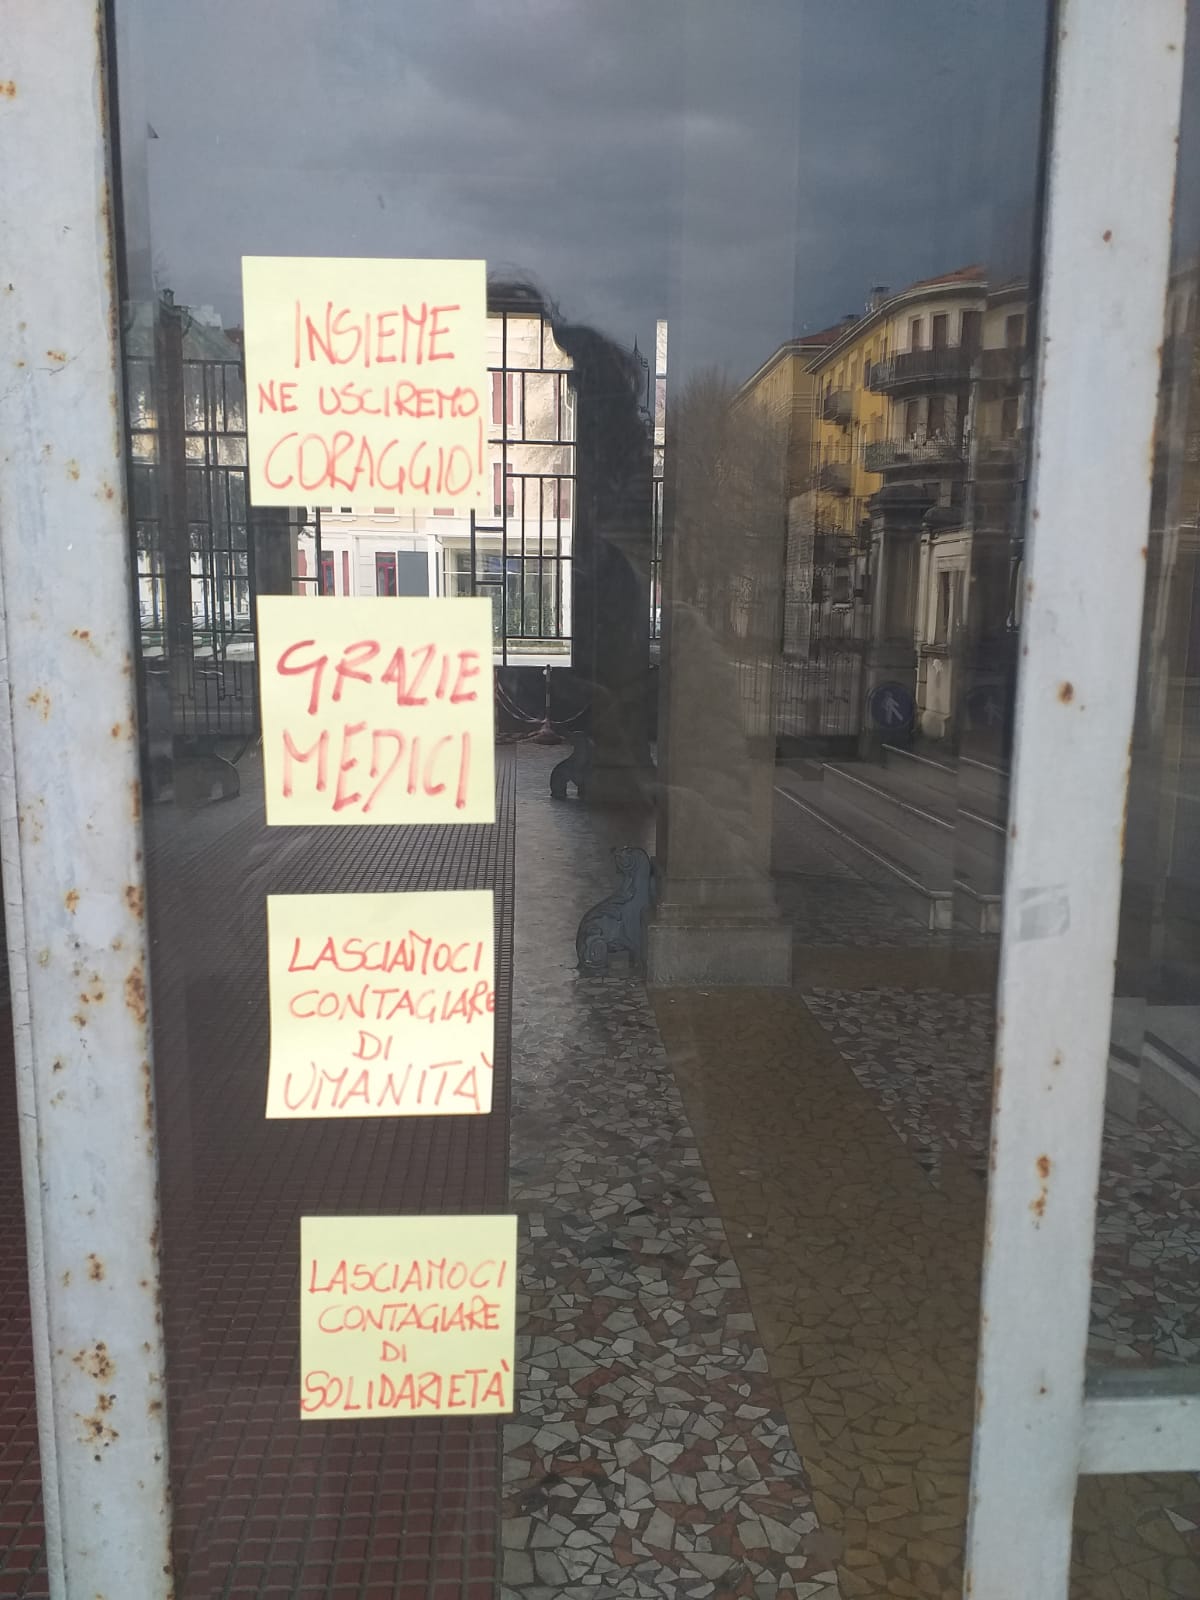 INSIEME
NE USCIREMO
CORAGGIO!
GRAZIE
MEDICI
LASCIAMOCI
CONTAGIARE
DI
UMANITÀ
LASCIAMOCI
CONTAGIARE
DI
SOLIDARIETÀ